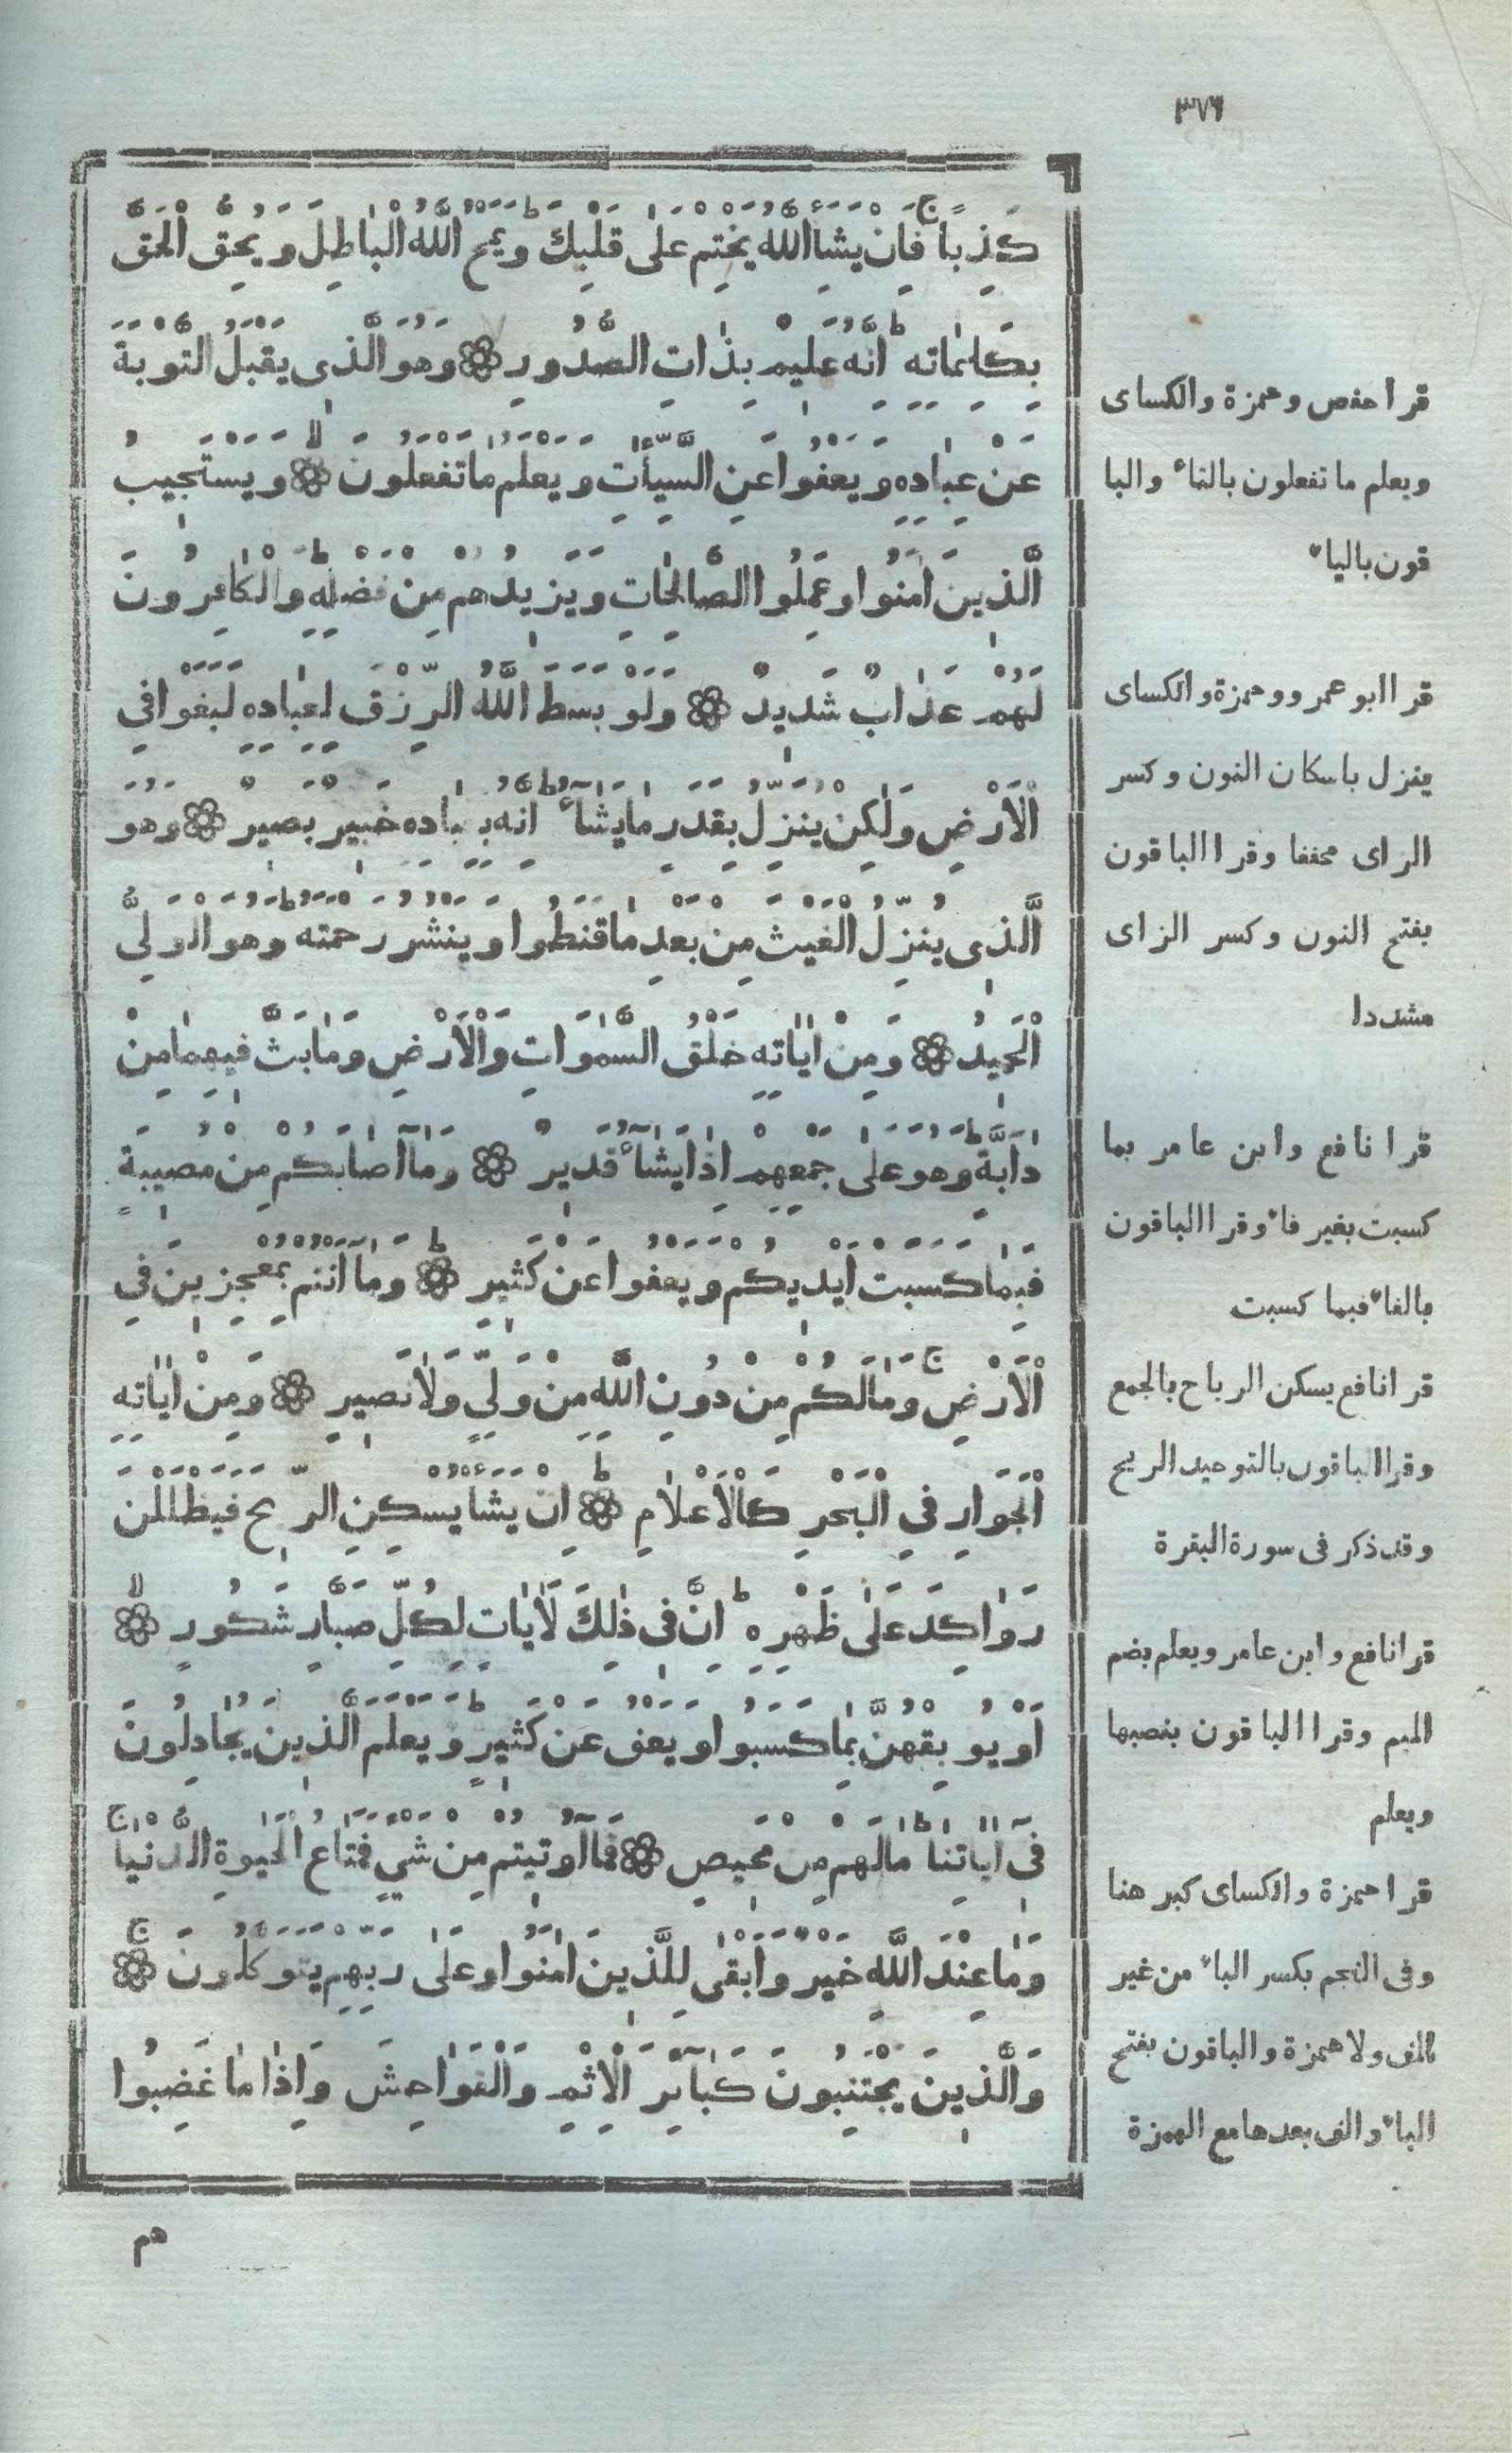 ٣٧٦
كَذِباً ج فَاِنْ يَشَاِ اللّٰهُ يَخْتِمْ عَلٰى قَلْبِكَ ط وَيَمْحُ اللّٰهُ الْبَاطِلَ وَيُحِقُّ الْحَقَّ
بِكَلِمَاتِهِ ط اِنَّهُ عَلِيمٌ بِذَاتِ الصُّدُورِ وَهُوَ الَّذِى يَقْبَلُ التَّوْبَةَ
عَنْ عِبَادِهِ وَيَعْفُوا عَنِ السَّيِّأٰتِ وَيَعْلَمُ مَا تَفْعَلُونَ لا وَيَسْتَجِيبُ
الَّذِينَ اٰمَنُوا وَعَمِلُوا الصَّالِحَاتِ وَيَزِيدُهُمْ مِنْ فَضْلِهِ ط وَالْكَافِرُونَ
لَهُمْ عَذَابٌ شَدِيدٌ وَلَوْ بَسَطَ اللّٰهُ الرِّزْقَ لِعِبَادِهِ لَبَغَوْا فِى
الْاَرْضِ وَلٰكِنْ يُنَزِّلُ بِقَدَرٍ مَا يَشَآءُ ط اِنَّهُ بِعِبَادِهِ خَبِيرٌ بَصِيرٌ وَهُوَ
الَّذِى يُنَزِّلُ الْغَيْثَ مِنْ بَعْدِ مَا قَنَطُوا وَيَنْشُرُ رَحْمَتَهُ ط وَهُوَ الْوَلِىُّ
الْحَمِيدُ وَمِنْ اٰيَاتِهِ خَلْقُ السَّمٰوَاتِ وَالْاَرْضِ وَمَا بَثَّ فِيهِمَا مِنْ
دَابَّةٍ ط وَهُوَ عَلٰى جَمْعِهِمْ اِذَا يَشَآءُ قَدِيرٌ وَمَآ اَصَابَكُمْ مِنْ مُصِيبَةٍ
فَبِمَا كَسَبَتْ اَيْدِيكُمْ وَيَعْفُوا عَنْ كَثِيرٍ ط وَمَآ اَنْتُمْ بِمُعْجِزِينَ فِى
الْاَرْضِ ج وَمَا لَكُمْ مِنْ دُونِ اللّٰهِ مِنْ وَلِىٍّ وَلَا نَصِيرٍ وَمِنْ اٰيَاتِهِ
الْجَوَارِ فِى الْبَحْرِ كَالْاَعْلَامِ ط اِنْ يَشَأْ يُسْكِنِ الرِّيحَ فَيَظْلَلْنَ
رَوَاكِدَ عَلٰى ظَهْرِهِ ط اِنَّ فِى ذٰلِكَ لَاٰيَاتٍ لِكُلِّ صَبَّارٍ شَكُورٍ لا
اَوْ يُوبِقْهُنَّ بِمَا كَسَبُوا وَيَعْفُ عَنْ كَثِيرٍ ط وَيَعْلَمَ الَّذِينَ يُجَادِلُونَ
فِىٓ اٰيَاتِنَا ط مَا لَهُمْ مِنْ مَحِيصٍ فَمَآ اُوتِيتُمْ مِنْ شَيْءٍ فَمَتَاعُ الْحَيٰوةِ الدُّنْيَا ج
وَمَا عِنْدَ اللّٰهِ خَيْرٌ وَاَبْقٰى لِلَّذِينَ اٰمَنُوا وَعَلٰى رَبِّهِمْ يَتَوَكَّلُونَ ج
وَالَّذِينَ يَجْتَنِبُونَ كَبَآئِرَ الْاِثْمِ وَالْفَوَاحِشَ وَاِذَا مَا غَضِبُوا
هم
قرا حفص وحمزة والكساى
ويعلم ما تفعلون بالتاء والبا
قون بالياء
قرا ابو عمرو وحمزة والكساى
ينزل باسكان النون وكسر
الزاى مخففا وقرا الباقون
بفتح النون وكسر الزاى
مشددا
قرا نافع وابن عامر بما
كسبت بغير فاء وقرا الباقون
بالفاء فبما كسبت
قرا نافع يسكن الرياح بالجمع
وقرا الباقون بالتوحيد الريح
وقد ذكر فى سورة البقرة
قرا نافع وابن عامر ويعلم بضم
الميم وقرا الباقون بنصبها
ويعلم
قرا حمزة والكساى كبر هنا
وفى النجم بكسر الباء من غير
الف ولا همزة والباقون بفتح
الباء والف بعدها مع الهمزة